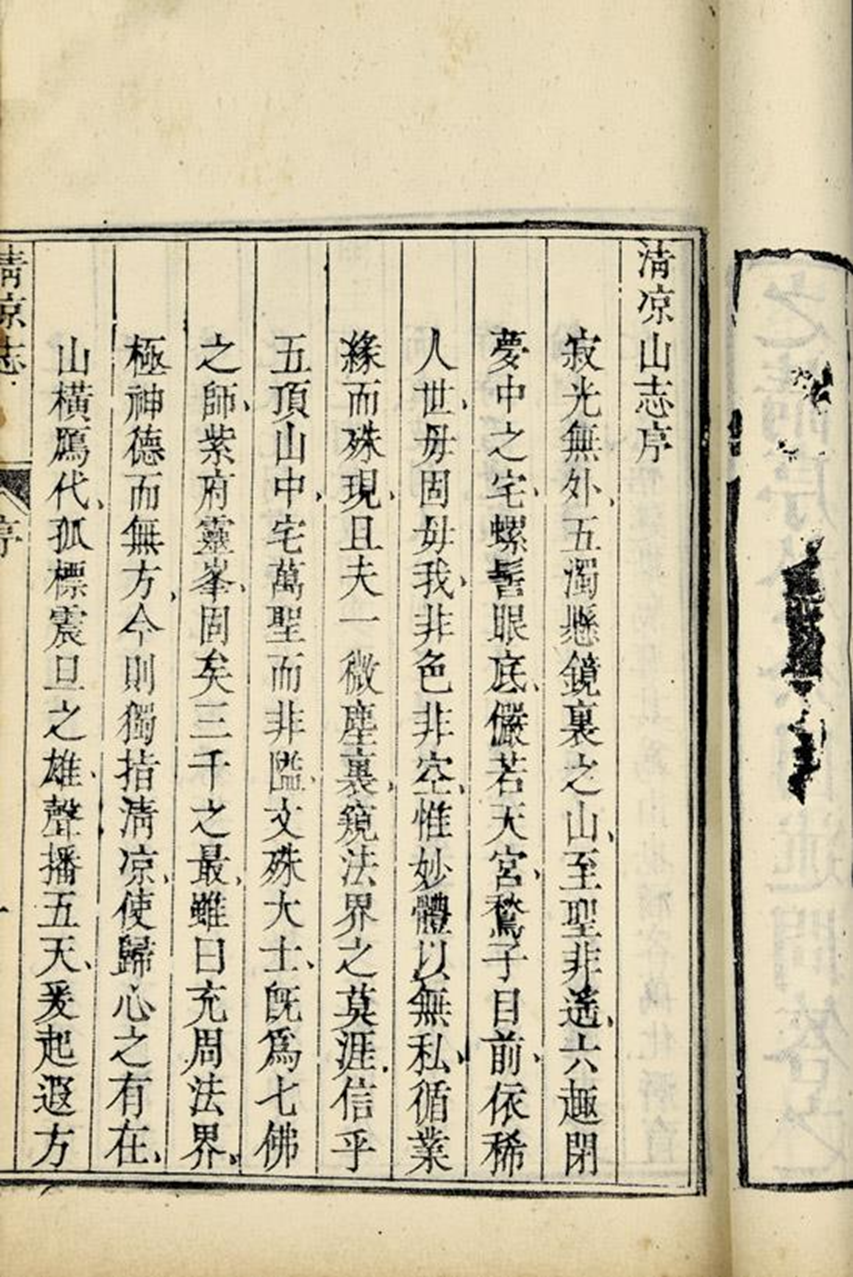 清凉山志序
寂光無外、五濁懸鏡裏之山、至聖非遙、六趣閉
夢中之宅、螺髻眼底、儼若天宮、鶖子目前、依稀
人世、毋固毋我、非色非空、惟妙體以無私、循業
緣而殊現、且夫一微塵裏、窺法界之莫涯、信乎
五頂山中、宅萬聖而非隘、文殊大士、旣爲七佛
之師、紫府靈峯、固矣三千之最、雖曰充周法界、
極神德而無方、今則獨指清凉、使歸心之有在、
山橫鴈代、孤標震旦之雄、聲播五天、爰起遐方
清凉志
序